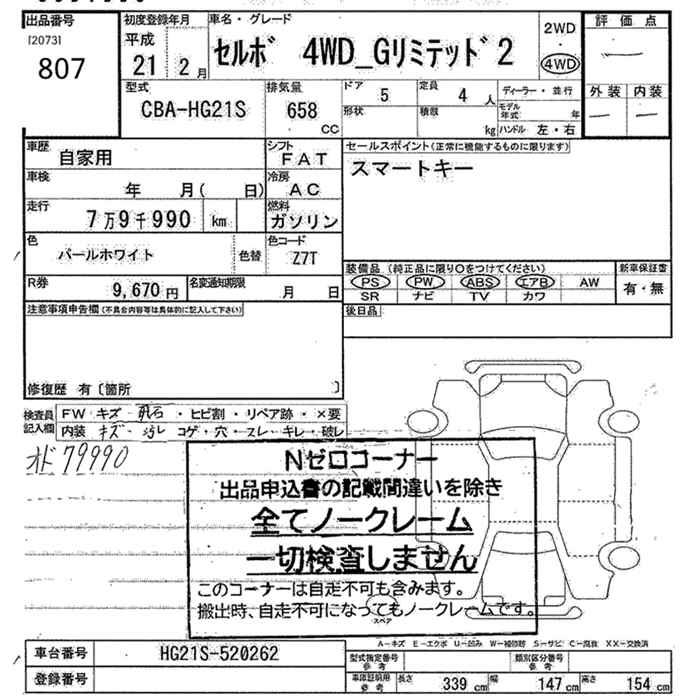 出品番号
[2073]
807
初度登録年月
平成
21 2月
車名・グレード
セルボ 4WD_Gリミテッド2
2WD
・
4WD
評価点
外装 内装
型式
CBA-HG21S
排気量
658
CC
ドア
5
定員
4 人
形状
積載
kg
ディーラー・並行
モデル年式 年
ハンドル 左・右
車歴
自家用
シフト
FAT
車検
年 月( 日)
冷房
AC
走行
7万9千990 km
燃料
ガソリン
色
パールホワイト
色替
色コード
Z7T
R券
9,670円
名変通知期限
月 日
セールスポイント(正常に機能するものに限ります)
スマートキー
装備品 (純正品に限り○をつけてください)
新車保証書
PS PW ABS エアB AW
SR ナビ TV カワ
有・無
後日品
注意事項申告欄(不具合内容等は具体的に記入して下さい)
修復歴 有〔箇所 〕
検査員記入欄
FW キズ・飛石・ヒビ割・リペア跡・×要
内装 キズ・汚レ コゲ・穴・スレ・キレ・破レ
オド79990
Nゼロコーナー
出品申込書の記載間違いを除き
全てノークレーム
一切検査しません
このコーナーは自走不可も含みます。
搬出時、自走不可になってもノークレームです。
スペア
A-キズ E-エクボ U-凹み W-補修跡 S-サビ C-腐食 XX-交換済
車台番号
HG21S-520262
登録番号
型式指定番号
参考
類別区分番号
参考
車庫証明用
参考
長さ 339 cm 幅 147 cm 高さ 154 cm